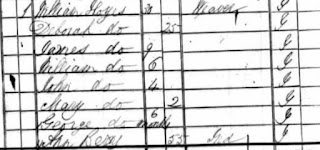 William 30 Weaver J
Deborah do 25 J
James do 9 J
William do 6 J
John do 4 J
Mary do 2 J
George do 6 months J
Ann 55 Ind J